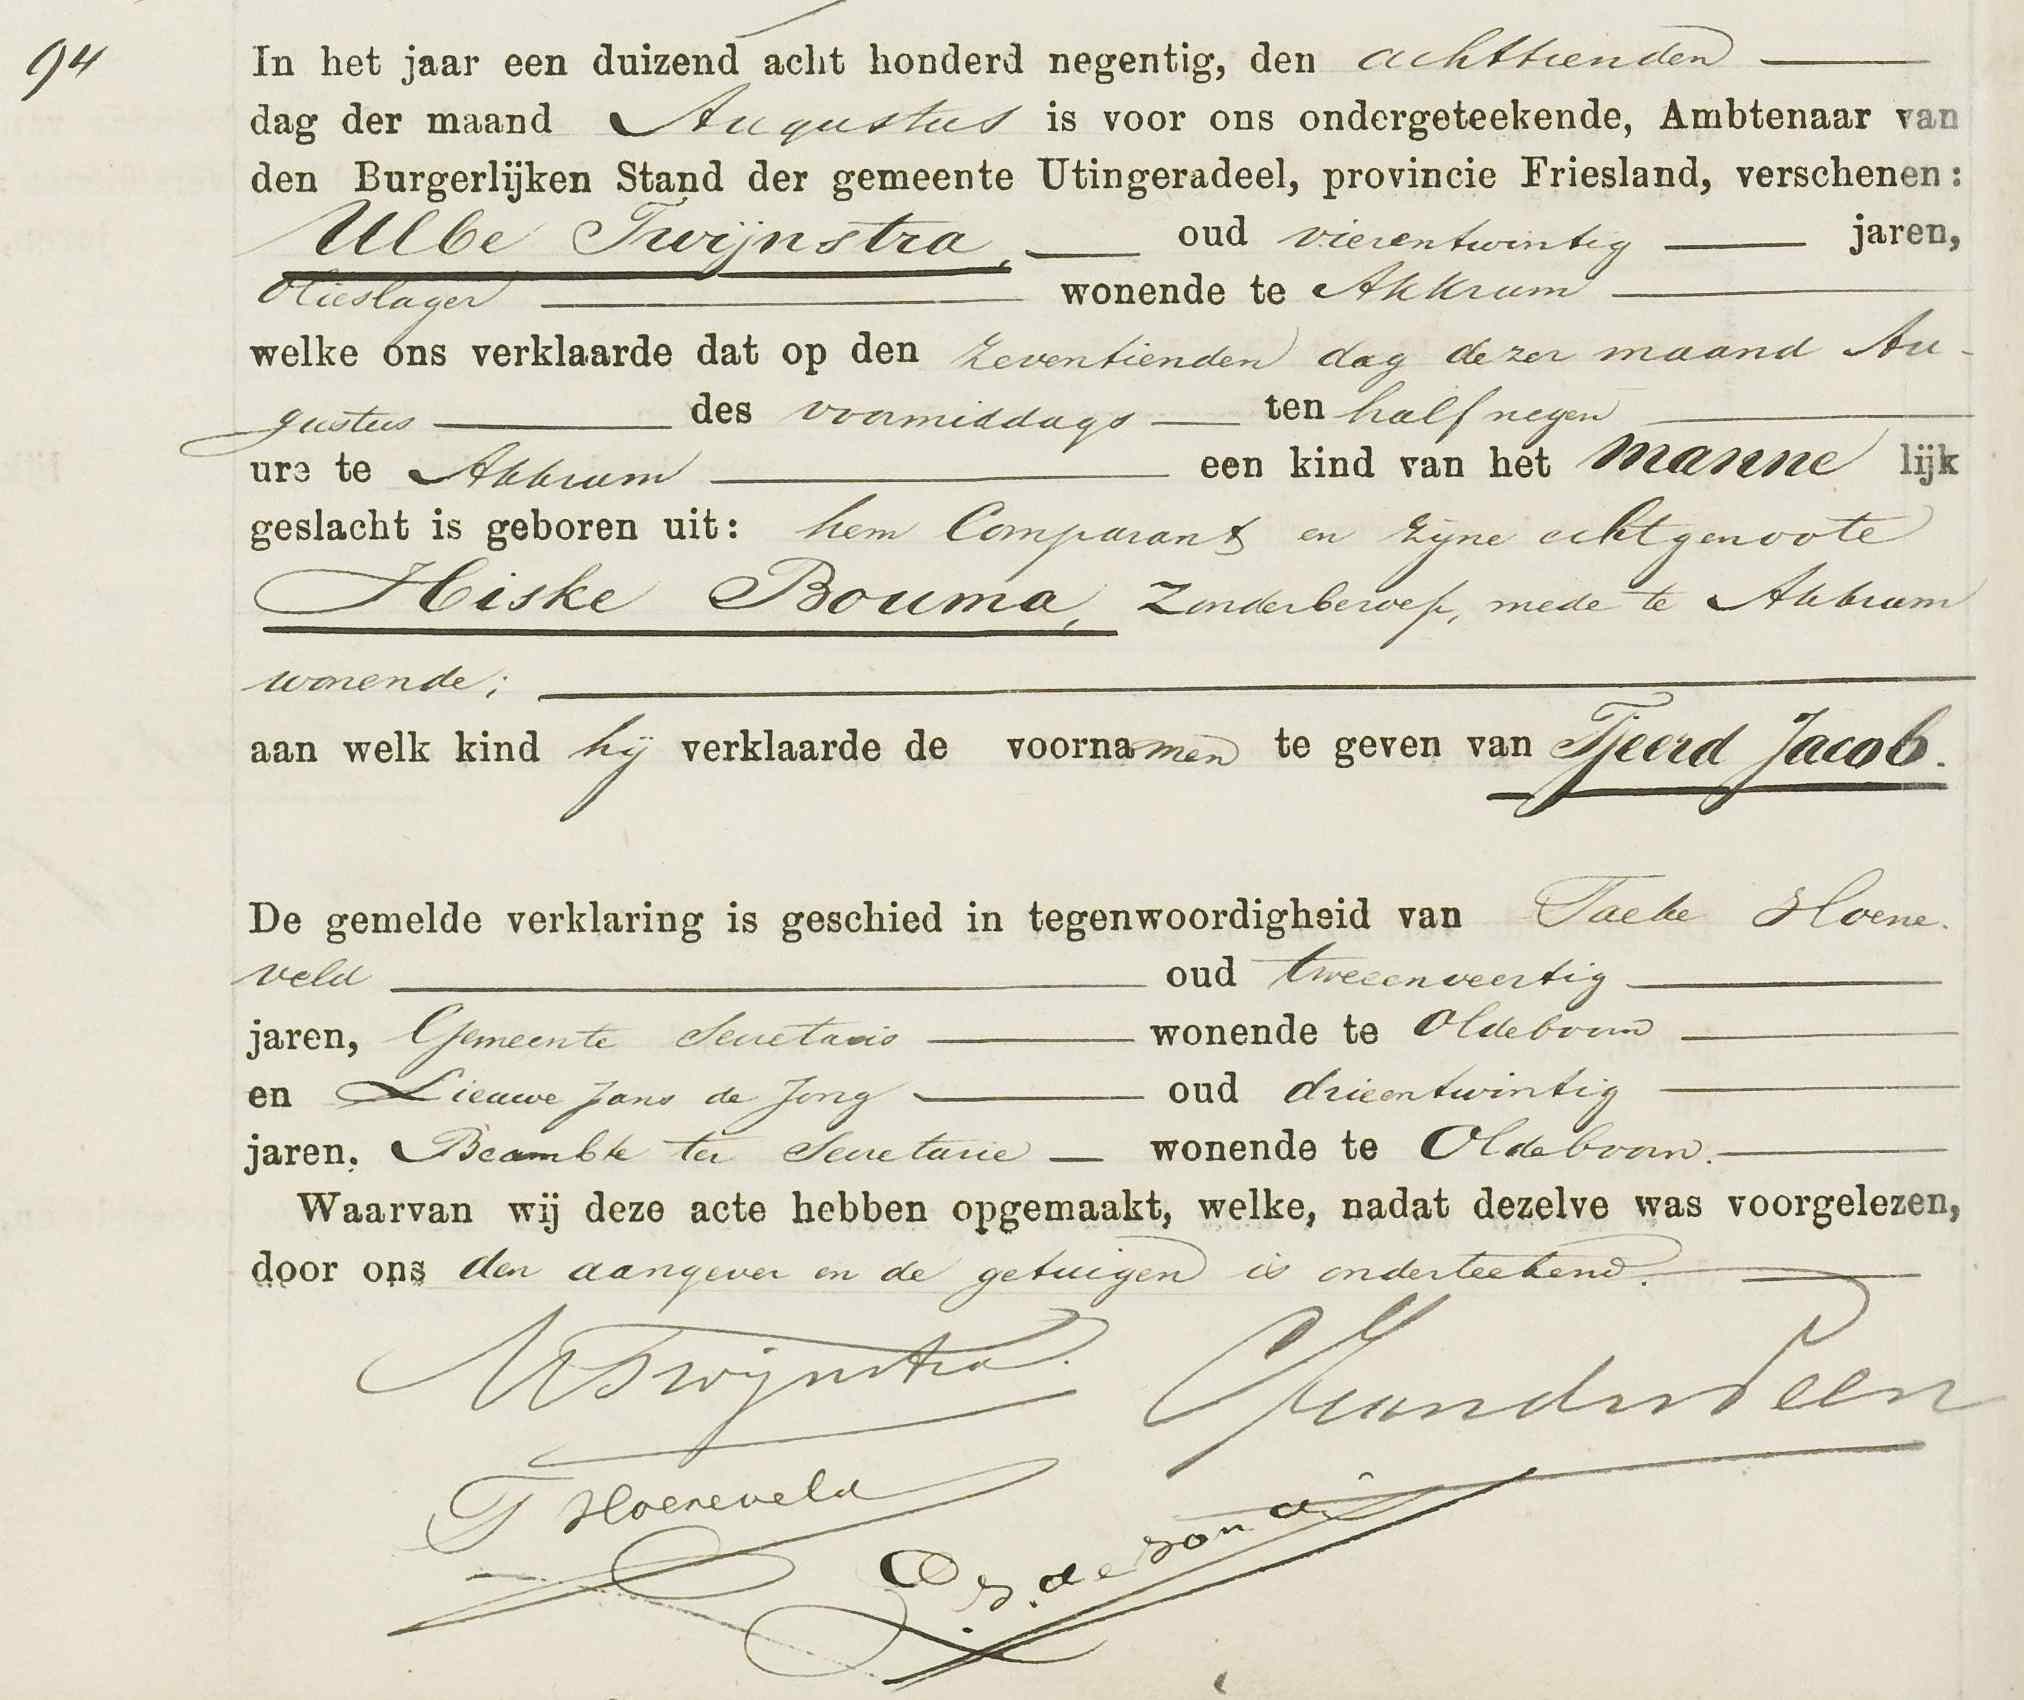 94
In het jaar een duizend acht honderd negentig, den achttienden
dag der maand Augustus is voor ons ondergeteekende, Ambtenaar van
den Burgerlijken Stand der gemeente Utingeradeel, provincie Friesland, verschenen:
Ulbe Twijnstra, oud vierentwintig jaren,
Olieslager wonende te Akkrum
welke ons verklaarde dat op den zeventienden dag dezer maand Au-
gustus des voormiddags ten half negen
ure te Akkrum een kind van het mannelijk
geslacht is geboren uit: hem Comparant en zijne echtgenoote
Hiske Bouma, zonder beroep, mede te Akkrum
wonende;
aan welk kind hij verklaarde de voornamen te geven van Tjeerd Jacob.
De gemelde verklaring is geschied in tegenwoordigheid van Taeke Hoene-
veld oud tweeenveertig
jaren, Gemeente Secretaris wonende te Oldeboorn
en Lieuwe Jans de Jong oud drieentwintig
jaren, Beambte ter Secretarie wonende te Oldeboorn.
Waarvan wij deze acte hebben opgemaakt, welke, nadat dezelve was voorgelezen,
door ons den aangever en de getuigen is onderteekend.
U Twijnstra
T Hoeneveld